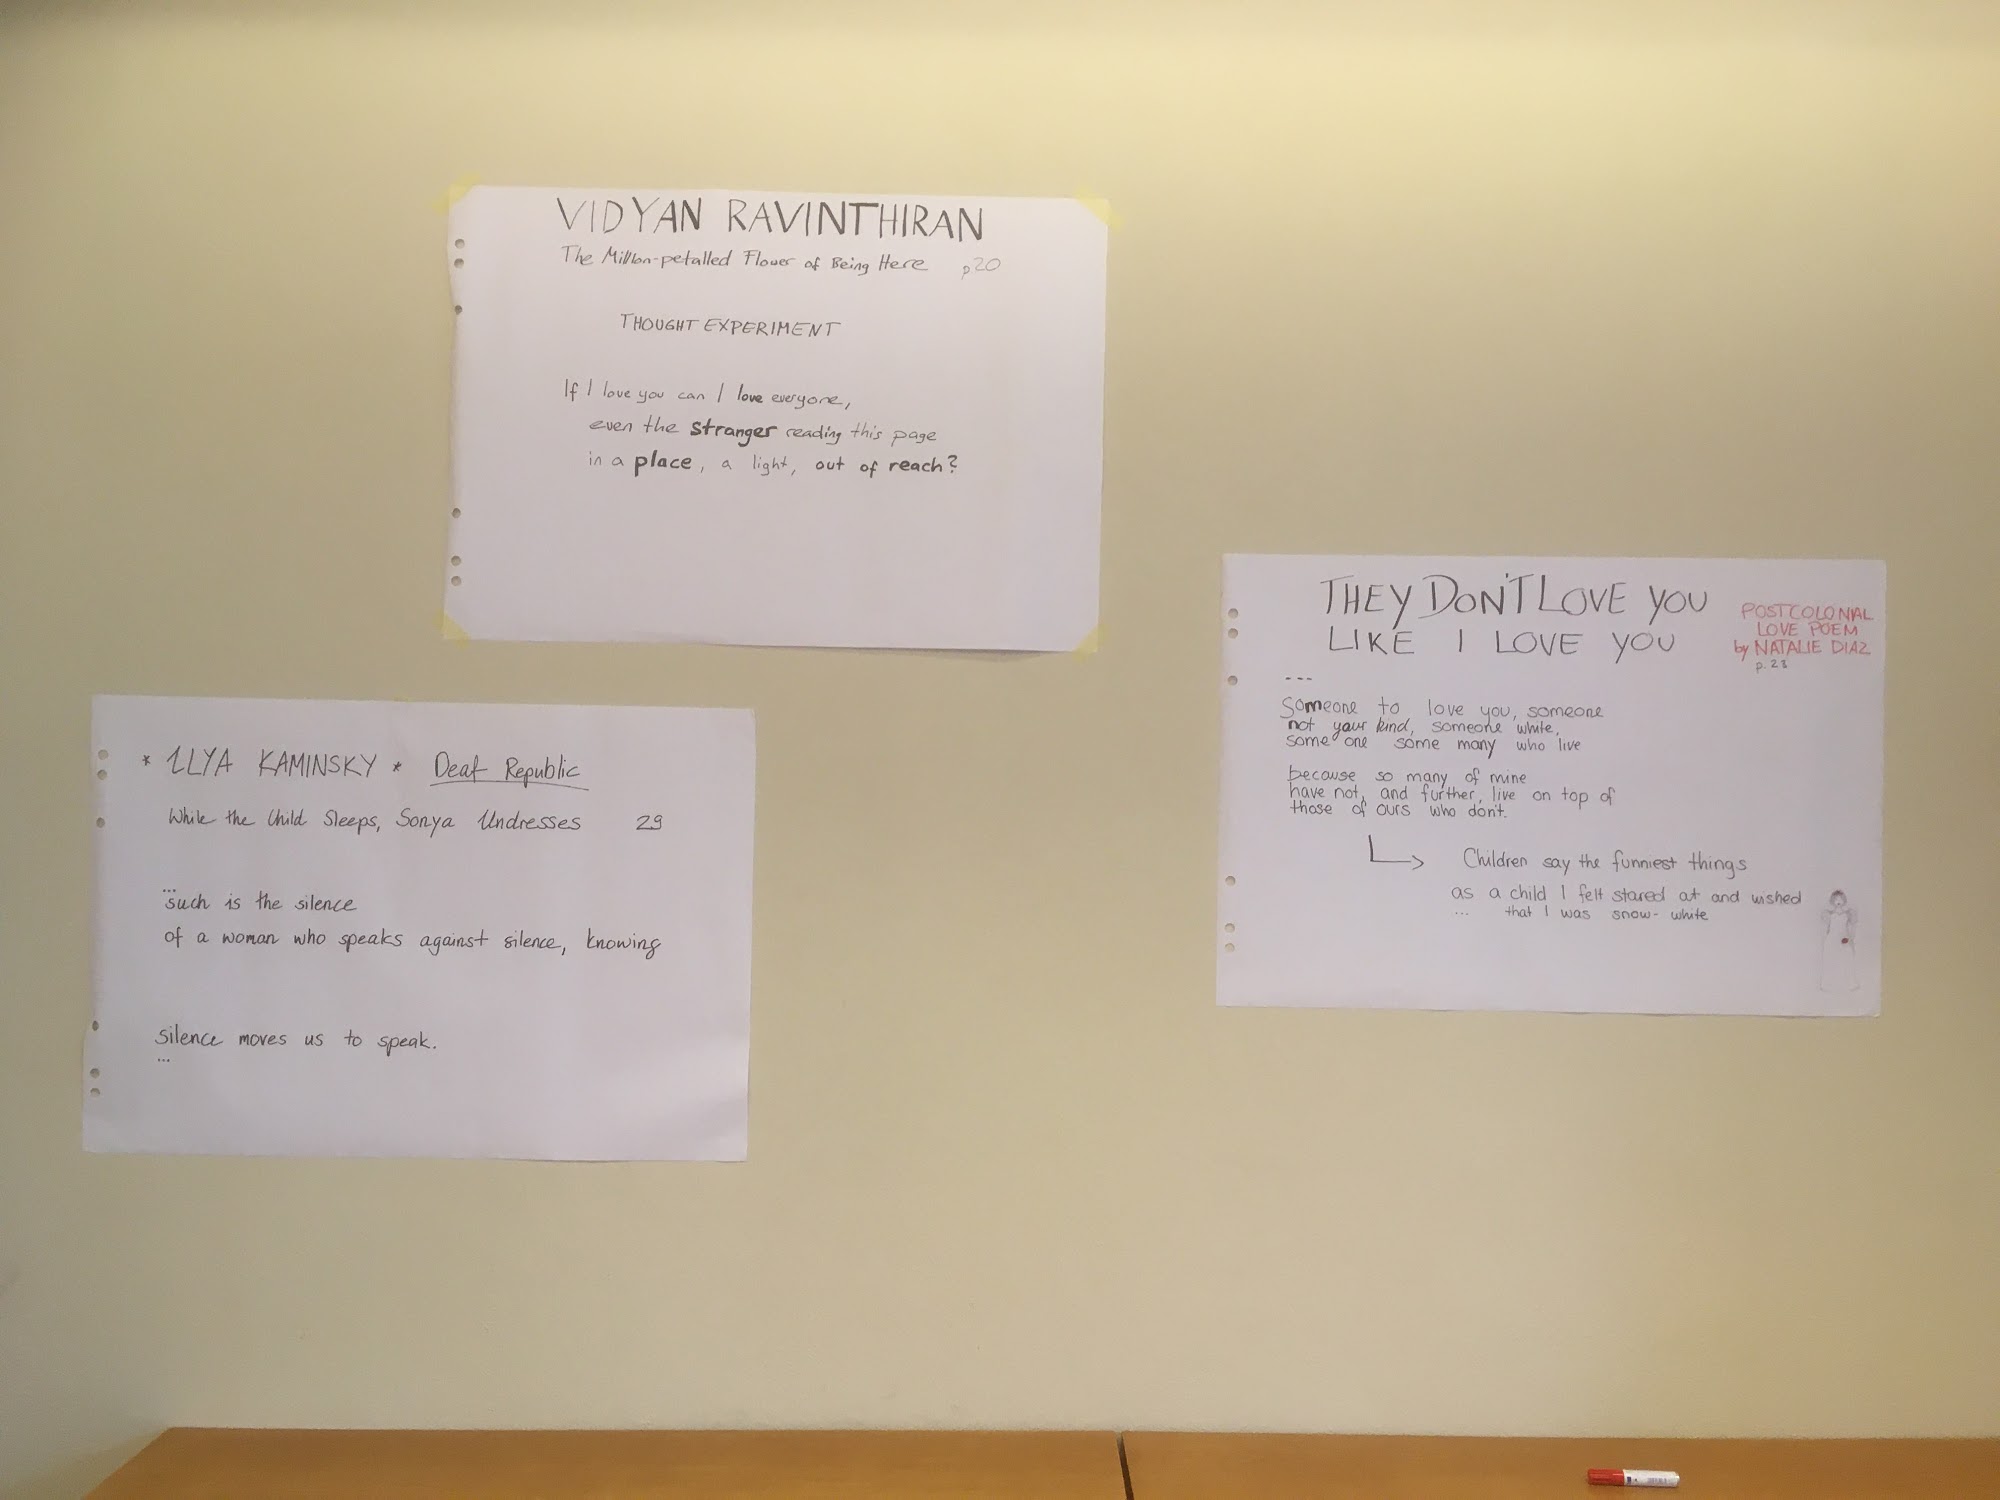 VIDYAN RAVINTHIRAN
The Million-petalled Flower of Being Here p20
THOUGHT EXPERIMENT
If I love you can I love everyone,
even the stranger reading this page
in a place, a light, out of reach?
* ILYA KAMINSKY * Deaf Republic
While the Child Sleeps, Sonya Undresses 29
...
such is the silence
of a woman who speaks against silence, knowing
silence moves us to speak.
...
THEY DON'T LOVE YOU
LIKE I LOVE YOU
POSTCOLONIAL
LOVE POEM
by NATALIE DIAZ
p. 23
---
Someone to love you, someone
not your kind, someone white,
some one some many who live
because so many of mine
have not, and further, live on top of
those of ours who don't.
Children say the funniest things
as a child I felt stared at and wished
... that I was snow-white